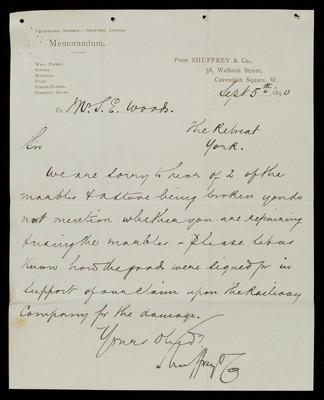 Telegraphic Address:—"Shuffrey, London."
Memorandum.
From SHUFFREY & Co.,
38, Welbeck Street,
Cavendish Square, W.
Wall Papers.
Stoves.
Mantels.
Tiles.
Finger Plates.
Domestic Glass.
Sept 5th 1890
To Mr. S. E. Woods.
The Retreat
York.
Sir
We are sorry to hear of 2 of the
marbles & a stove being broken you do
not mention whether you are repairing
& using the marbles – Please let us
know how the goods were signed for in
support of our claim upon the Railway
Company for the damage.
Yours Obedt.
Shuffrey & Co